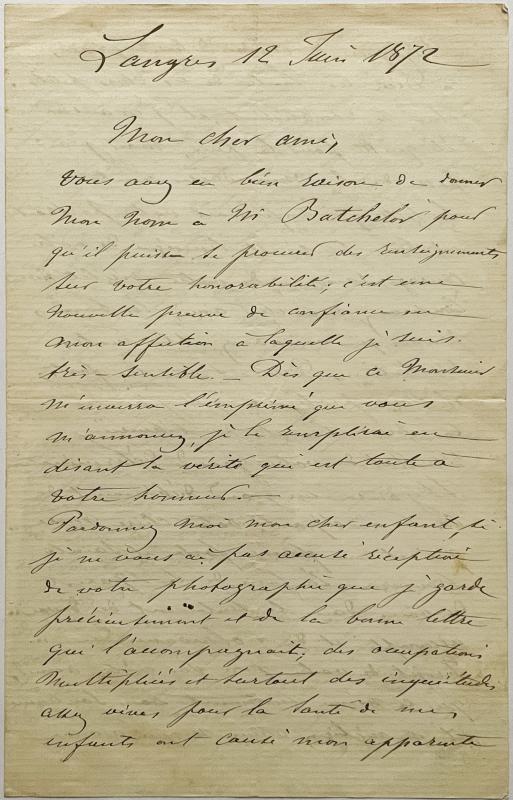 Langres 12 Juin 1872
Mon cher ami,
Vous avez eu bien raison de donner
mon nom à Mr Batchelor pour
qu'il puisse se procurer des renseignements
sur votre honorabilité; c'est une
nouvelle preuve de confiance en
mon affection à laquelle je suis
très-sensible. – Dès que ce Monsieur
m'enverra l'imprimé que vous
m'annoncez, je le remplirai en
disant la vérité qui est toute à
votre honneur. –
Pardonnez moi mon cher enfant, si
je ne vous ai pas accusé réception
de votre photographie que je garde
précieusement et de la bonne lettre
qui l'accompagnait; des occupations
multipliées et surtout des inquiétudes
assez vives pour la santé de mes
enfants ont causé mon apparente